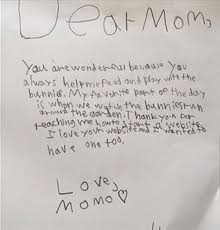 Dear Mom,
You are wonderful because you
always help me feed and play with the
bunnies. My favorite part of the day
is when we watch the bunnies run
around the garden. Thank you for
teaching me how to start a website.
I love your website and I wanted to
have one too.
Love,
MOMO♡